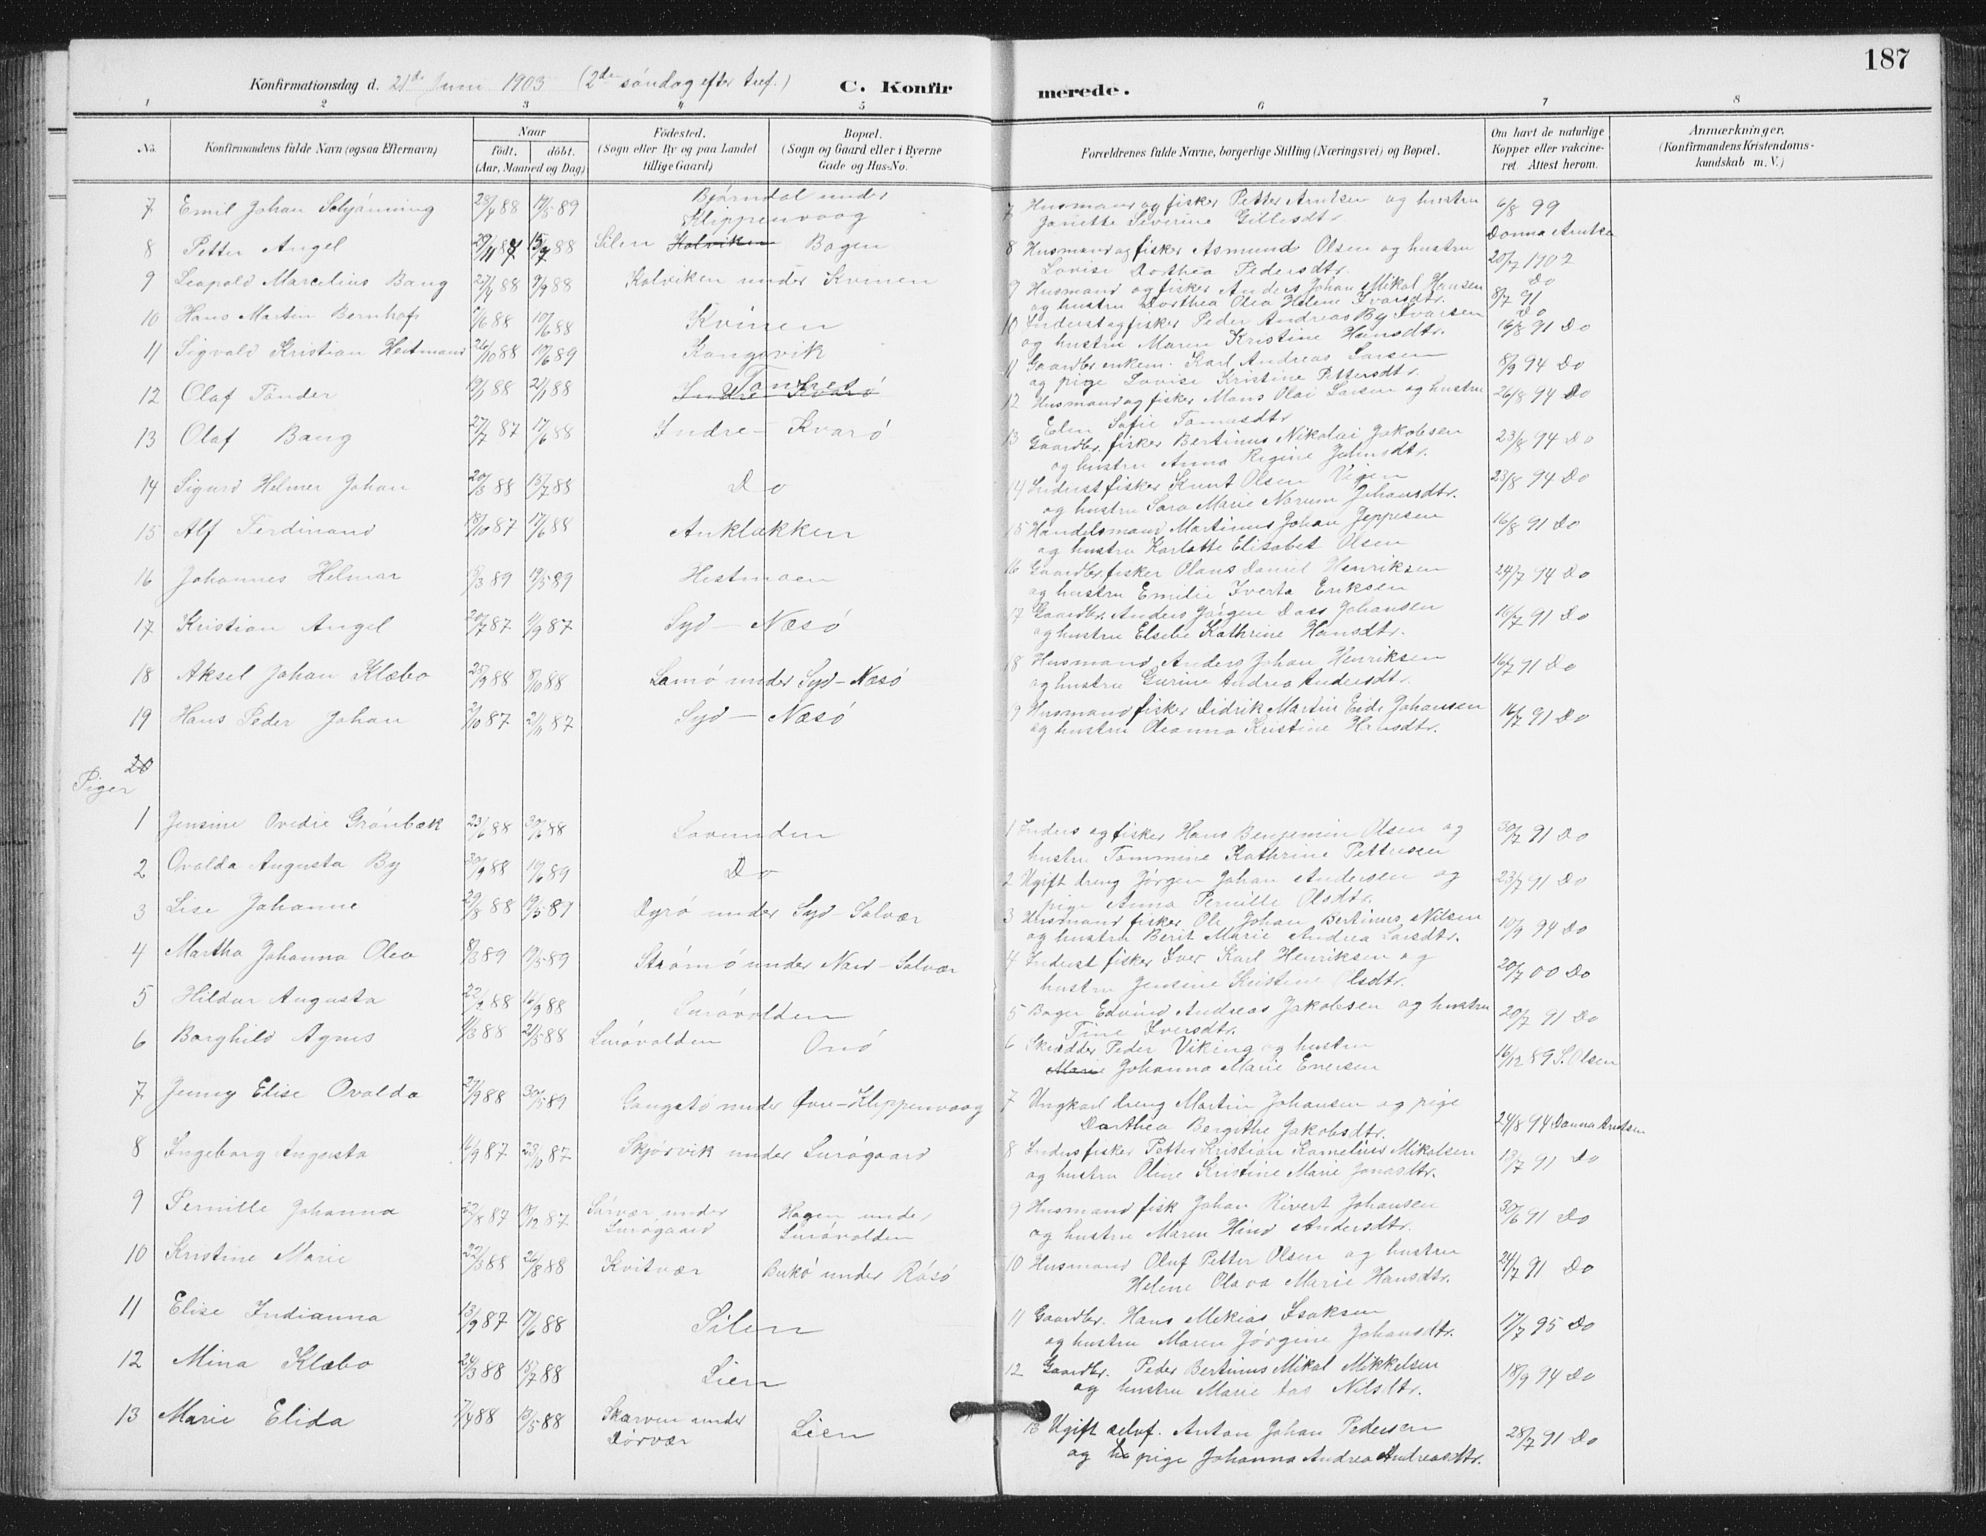 187
Konfirmationsdag d. 21de Juni 1903 (2den söndag efter tref.) C. Konfirmerede.
1 2 3 4 5 6 7 8
No. Konfirmandens fulde Navn (ogsaa Efternavn) Naar födt. döbt. (Aar, Maaned og Dag) Födested. (Sogn eller By og paa Landet tillige Gaard) Bopæl. (Sogn og Gaard eller i Byerne Gade og Hus-No. Forældrenes fulde Navne, borgerlige Stilling (Næringsvei) og Bopæl. Om havt de naturlige Kopper eller vakcineret. Attest herom. Anmærkninger. (Konfirmandens Kristendomskundskab m. V.)
7 Emil Johan Schjönning 28/4 88 19/5 89 Bjørndal under Klippenvaag 7 Husmand og fisker Petter Arntsen og hustru Janette Severine Gillesdtr. 6/8 99 Donna Arntsen
8 Petter Angel 29/11 87 15/7 88 Silen Kolviken Bagen 8 Husmand og fisker Asmund Olsen og hustru Lovise Dorthea Pedersdtr. 20/7 1902 Do
9 Leopold Marcelius Bang 27/7 88 9/9 88 Kolviken under Kvinen 9 Husmand og fisker Anders Johan Mikal Hansen og hustru Dorthea Olea Helene Ivarsdtr. 8/7 91 Do
10 Hans Martin Bernhof /6 88 10/6 88 Kvinen 10 Inderst og fisker Peder Andreas By Ivarsen og hustru Maren Kristine Hansdtr. 16/8 91 Do
11 Sigvald Kristian Heitmann 26/10 88 19/6 89 Kongsvik 11 Gaardbr. enkem. Karl Andreas Larsen og pige Lovise Kristine Pettersdtr. 8/9 94 Do
12 Olaf Tönder 88 88 Indre Kvarö Tonnes 12 Husmand og fisker Mons Olai Larsen og hustru Elen Sofie Tomasdtr. 26/8 94 Do
13 Olaf Bang 27/7 87 17/6 88 Indre – Kvarö 13 Gaardbr. fisker Bertinus Nikolai Jakobsen og hustru Anna Regine Johnsdtr. 23/8 94 Do
14 Sigurd Helmer Johan 20/3 88 15/7 88 Do 14 Inderst fisker Knut Olsen Vigen og hustru Sara Marie Norum Johansdtr. 23/8 94 Do
15 Alf Ferdinand 18/10 87 17/6 88 Anklakken 15 Handelsmand Martinus Johan Jeppesen og hustru Karlotte Elisabet Olsen 16/8 91 Do
16 Johannes Helmar /3 89 19/5 89 Hestmoen 16 Gaardbr. fisker Olaus Daniel Henriksen og hustru Emilie Iverta Eriksen 24/7 94 Do
17 Kristian Angel 20/7 87 /9 87 Syd – Næsö 17 Gaardbr. Anders Jörgen Dass Johansen og hustru Elsebe Kathrine Hansdtr. 16/7 91 Do
18 Aksel Johan Klæbo 23/9 88 8/10 88 Lamö under Syd – Næsö 18 Husmand Anders Johan Henriksen og hustru Gurine Andrea Andersdtr. 16/7 91 Do
19 Hans Peder Johan 2/10 87 2/11 87 Syd – Næsö 9 Husmand fisker Didrik Martin Eide Johansen og hustru Oleanna Kristine Hansdtr. 16/7 91 Do
20
Piger
1 Jensine Ovedie Grönbæk 23/6 88 30/6 88 Lovunden 1 Inders og fisker Hans Benjamin Olsen og hustru Tommine Kathrine Pettersen 30/7 91 Do
2 Ovalda Augusta By 30/9 88 19/6 89 Do 2 Ugift dreng Jörgen Johan Andersen og pige Anna Pernille Olsdtr. 23/7 91 Do
3 Lise Johanne 29/8 88 19/5 89 Dyrö under Syd – Solvær 3 Husmand fisker Ole Johan Bertinus Nilsen og hustru Berit Marie Andrea Larsdtr. 10/9 94 Do
4 Martha Johanna Olea 8/3 89 19/5 89 Strömö under Nord – Solvær 4 Inderst fisker Iver Karl Henriksen og hustru Jensine Kristine Olsdtr. 20/7 00 Do
5 Hildur Augusta 22/2 88 16/9 88 Lurövolden 5 Bager Edvind Andreas Jakobsen og hustru Tine Iversdtr. 20/7 91 Do
6 Borghild Agnes 11/3 88 21/5 88 Lurövolden Onö 6 Skrædder Peder Viking og hustru Marie Johanna Marie Enersen 16/12 89 S. Olsen
7 Jenny Elise Ovalda 27/9 88 30/5 89 Gangstö under Øvre – Klippenvaag 7 Ungkarl dreng Martin Johansen og pige Dorthea Bergithe Jakobsdtr. 24/8 94 Donna Arntsen
8 Ingeborg Augusta 16/9 87 23/10 87 Skjørvik under Lurögaard 8 Inders fisker Petter Kristian Kornelius Mikalsen og hustru Oline Kristine Marie Jonasdtr. 19/7 91 Do
9 Pernille Johanna 22/8 87 18/12 87 Sörvær under Lurögaard Hagen under LuröVolden 9 Husmand fisk Johan Rivert Johansen og hustru Maren Hind Andersdtr. 30/6 91 Do
10 Kristine Marie 22/3 88 26/8 88 Kvitvær Bukö under Rösö 10 Husmand Oluf Petter Olsen og hustru Helene Olava Marie Hansdtr. 24/7 91 Do
11 Elise Indianna 13/9 87 17/6 88 Silen 11 Gaardbr. Hans Mekias Isaksen og hustru Maren Jörgine Johansdtr. 17/7 95 Do
12 Mina Klæbo 24/3 88 15/7 88 Lien 12 Gaardbr. Peder Bertinus Mikal Mikkelsen og hustru Marie Nilsdtr. 18/9 94 Do
13 Marie Elida 7/4 88 13/5 88 Skarven under Dörvær Lien 13 Ugift selvf. Anton Johan Pedersen og pige Johanna Andrea Andreasdtr. 28/7 91 Do